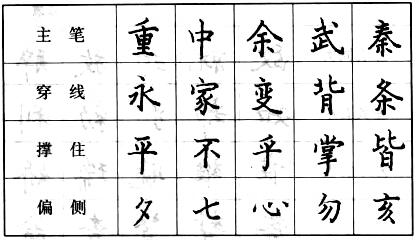 主笔 重 中 余 武 秦
穿线 永 家 变 背 条
撑住 平 不 乎 掌 皆
偏侧 夕 七 心 勿 亥